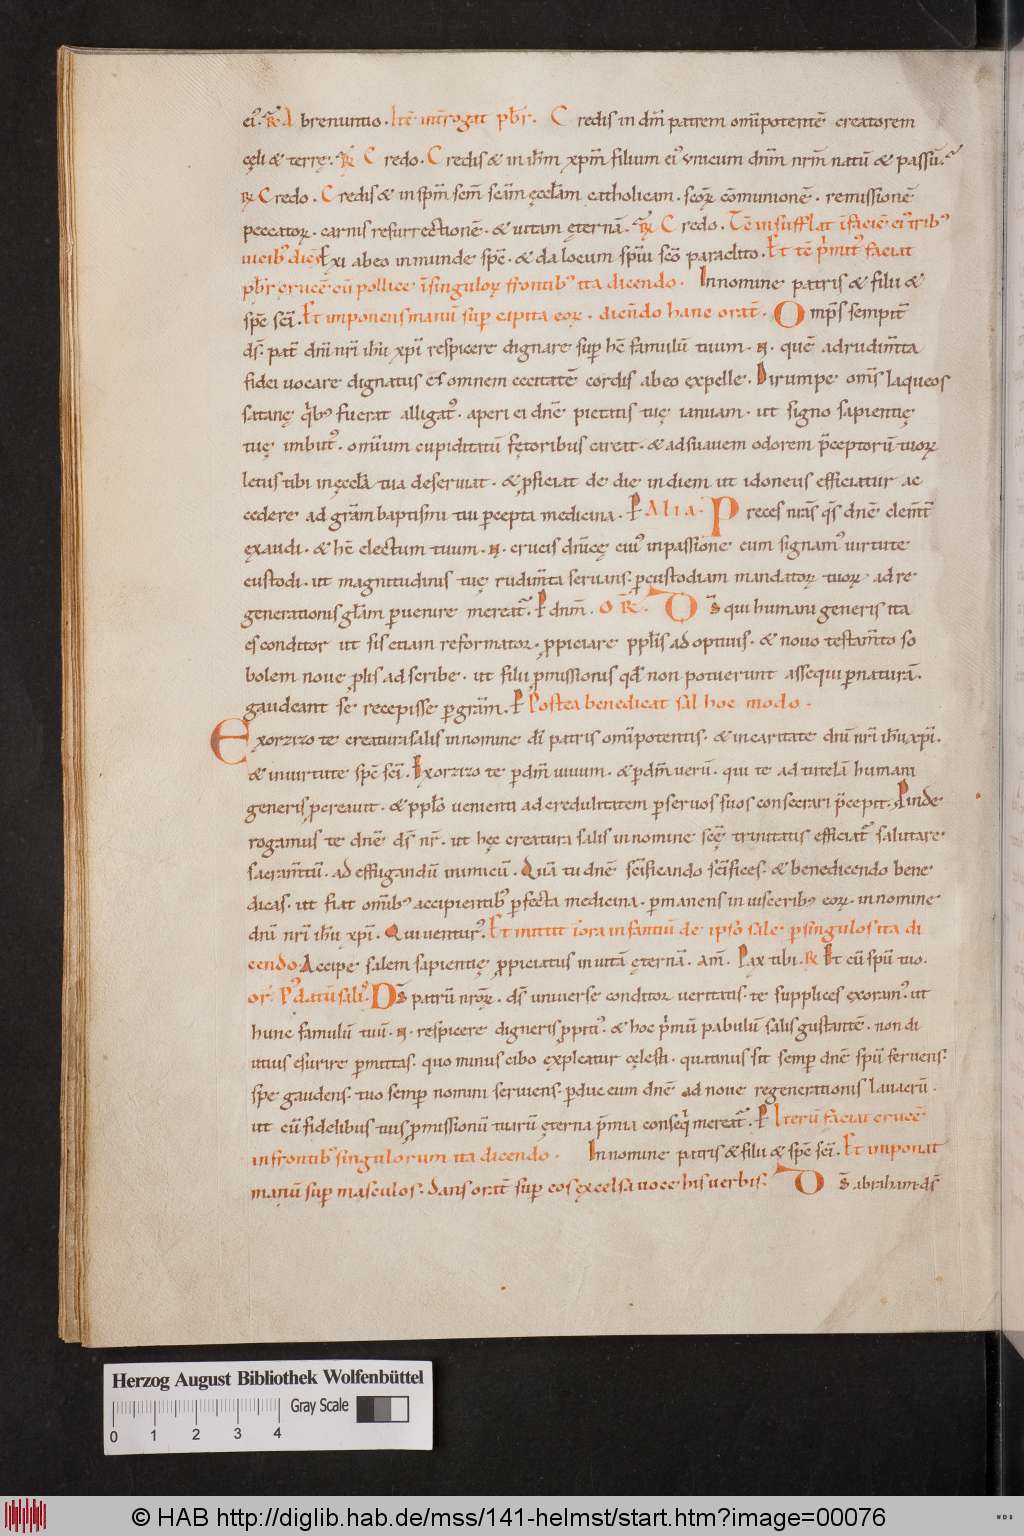 ei᷒. R̃ Abrenuntio. Itē int̄rogat p̄br. Credis in dm̄ patrem omīpotentē creatorem
cęli & terrę. R̃ Credo. Credis & in ih̄m xp̄m filium ei᷒ unicum dn̄m nr̄m natū & passū.
R̃ Credo. Credis & in sp̄m sc̄m scām ęccl̄am catholicam. sc̄oꝝ cōmunionē. remissionē
peccatoꝝ. carnis resurrectionē. & uitam ęternā. R̃ Credo. Tē insufflat ī faciē ei᷒ trib᷒
uicib᷒ dicēs Exi ab eo inmunde sp̄c. & da locum sp̄ui sc̄o paraclito. Et tē p̄mit᷒ faciat
p̄br crucē cū pollice ī singuloꝝ frontib᷒ ita dicendo. In nomine patris & filii &
sp̄c sc̄i. Et imponens manū sup̄ capita eoꝝ. dicēndo hanc orat̄. Omp̄s sempit̄
ds̄. pat̄ dn̄i nr̄i ih̄u xp̄i respicere dignare sup̄ hc̄ famulū tuum. N. quē ad rudim̄ta
fidei uocare dignatus es omnem cecitatē cordis ab eo expelle. Dirumpe om̄s laqueos
satanę q̄b᷒ fuerat alligat᷒. aperi ei dn̄e pietatis tuę ianuam. ut signo sapientię
tuę imbut᷒. omīum cupiditatū fętoribus careat. & ad suauem odorem p̄ceptorū tuoꝝ
letus tibi in ęccl̄a tua deseruiat. & ꝓficiat de die in diem ut idoneus efficiatur ac
cedere ad grām baptismi tui ꝑcepta medicina. P Alia. Preces nr̄as qs̄ dn̄e clem̄t̄
ęxaudi. & hc̄ electum tuum. N. crucis dn̄icę cui᷒ inpassione eum signam᷒ uirtute
custodi. ut magnitudinis tuę rudim̄ta seruans. ꝑ custodiam mandatoꝝ tuoꝝ ad re
generationis glām ꝑuenire mereat᷒. P dnm̄. OR̄. Ds̄ qui humani generis ita
es conditor ut sis etiam reformator. ꝓpiciare ppl̄is adoptiuis. & nouo testam̄to so
bolem noue ꝓlis adscribe. ut filii ꝓmissionis qd̄ non potuerunt assequi ꝑ naturā.
gaudeant se recepisse ꝑ grām. P Postea benedicat sal hoc modo.
Exorzizo te creatura salis in nomine dī patris omīpotentis. & in caritate dn̄i nr̄i ih̄u xp̄i.
& in uirtute sp̄c sc̄i. Exorzizo te ꝑ dm̄ uiuum. & ꝑ dm̄ uerū. qui te ad tutelā humani
generis ꝓcreauit. & ppl̄o uenienti ad credulitatem ꝑ seruos suos consecrari p̄cepit. Proinde
rogamus te dn̄e ds̄ nr̄. ut hęc creatura salis in nomine scę̄ trinitatis efficiat᷒ salutare
sacram̄tū. ad effugandū inimicū. Quā tu dn̄e sc̄ificando sc̄ifices. & benedicendo bene
dicas. ut fiat om̄ib᷒ accipientib᷒ ꝑfecta medicina. ꝑmanens in uisceribus eoꝝ. in nomine
dn̄i nr̄i ih̄u xp̄i. Qui uentur᷒. Et mittit ī ora infantiū de ipso sale ꝑ singulos ita di
cendo. Accipe salem sapientię ꝓpiciatus in uitā ęternā. Am̄. Pax tibi. R̃ Et cū sp̄u tuo.
or̄. P᷒ datū sali᷒. Ds̄ patrū nr̄oꝝ. ds̄ uniuerse conditor ueritatis. te supplices exoram᷒. ut
hunc famulū tuū. N. respicere digneris ꝓpiti᷒. & hoc p̄mū pabulū salis gustantē. non di
utius esurire ꝑmittas. quo minus cibo expleatur cęlesti. quatinus sit semp̄ dn̄e sp̄u feruens.
spe gaudens. tuo semp̄ nomini seruiens. ꝑduc eum dn̄e ad noue regenerationis lauacrū.
ut cū fidelibus tuis ꝓmissionū tuarū ęterna p̄mia conseq̄ mereat᷒. P Iterū faciat crucē
in frontib᷒ singulorum ita dicendo. In nomine patris & filii & sp̄c sc̄i. Et imponat
manū sup̄ masculos. dans orat̄ sup̄ eos excelsa uoce his uerbis. Ds̄ abraham. ds̄
Herzog August Bibliothek Wolfenbüttel
Gray Scale
0 1 2 3 4
© HAB http://diglib.hab.de/mss/141-helmst/start.htm?image=00076